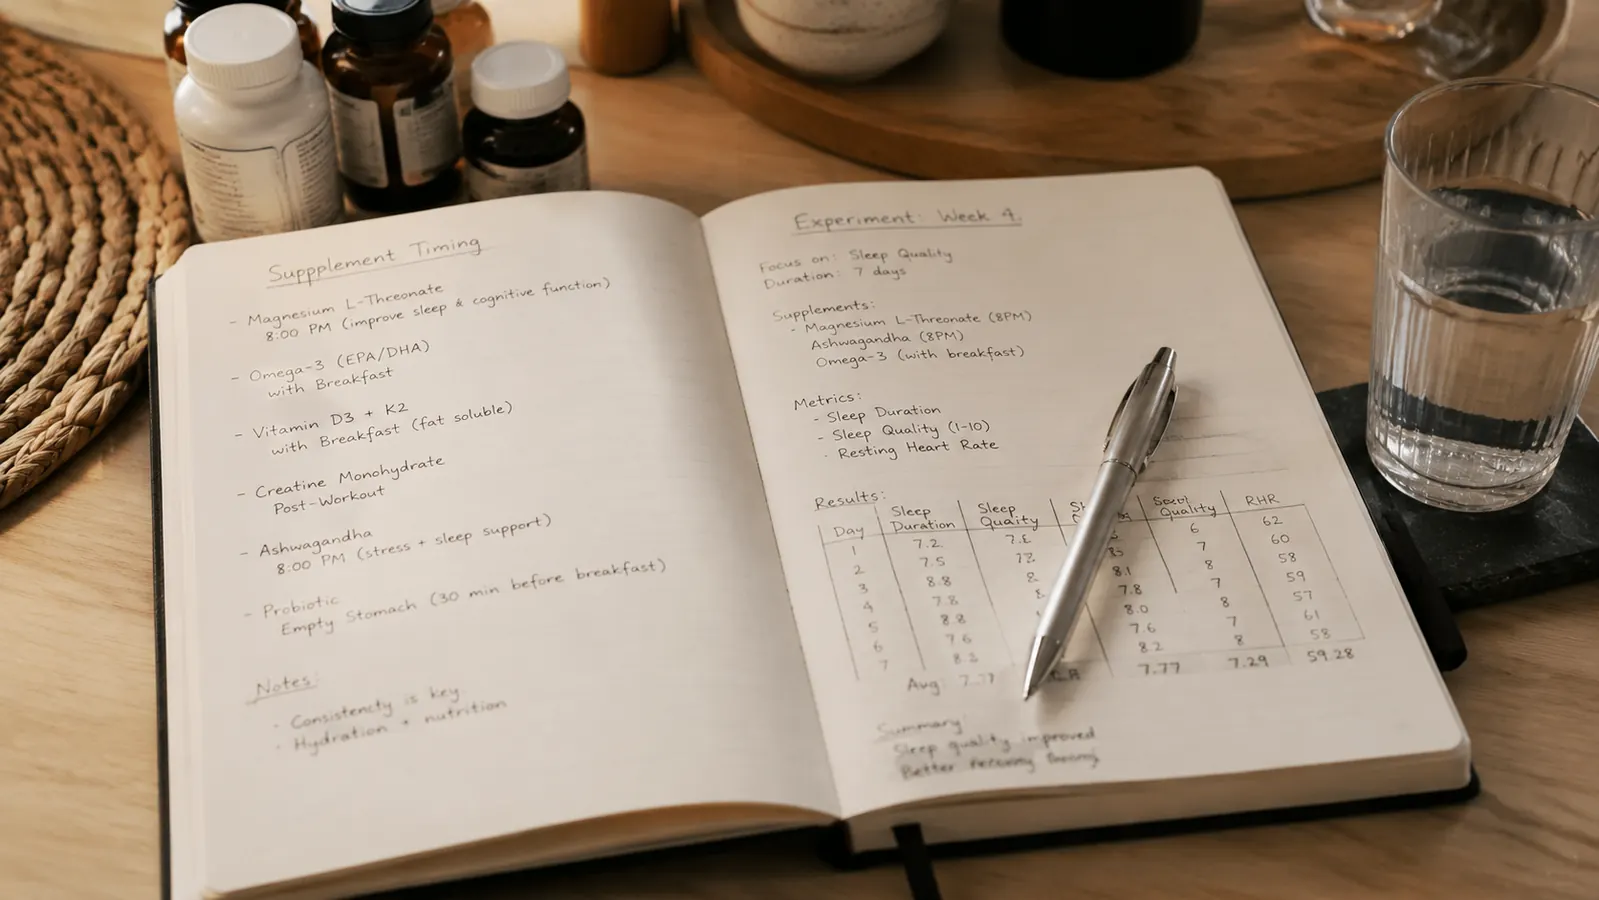 Suppplement Timing
- Magnesium L-Threonate
8:00 PM (improve sleep & cognitive function)
- Omega-3 (EPA/DHA)
with Breakfast
- Vitamin D3 + K2
with Breakfast (fat soluble)
- Creatine Monohydrate
Post-Workout
- Ashwagandha
8:00 PM (stress + sleep support)
- Probiotic
Empty Stomach (30 min before breakfast)
Notes:
- Consistency is key.
- Hydration + nutrition
Experiment: Week 4.
Focus on: Sleep Quality
Duration: 7 days
Supplements:
- Magnesium L-Threonate (8PM)
Ashwagandha (8PM)
Omega-3 (with breakfast)
Metrics:
- Sleep Duration
- Sleep Quality (1-10)
- Resting Heart Rate
Results:
Day Sleep Duration Sleep Quality RHR
1 7.2 6 62
2 7.5 7 60
3 8.8 8.1 8 58
4 7.8 7.8 7 59
5 8.8 8.0 8 57
6 7.6 7.6 7 61
7 8.2 8.2 8 58
Avg: 7.77 7.77 7.29 59.28
Summary:
Sleep quality improved
Better